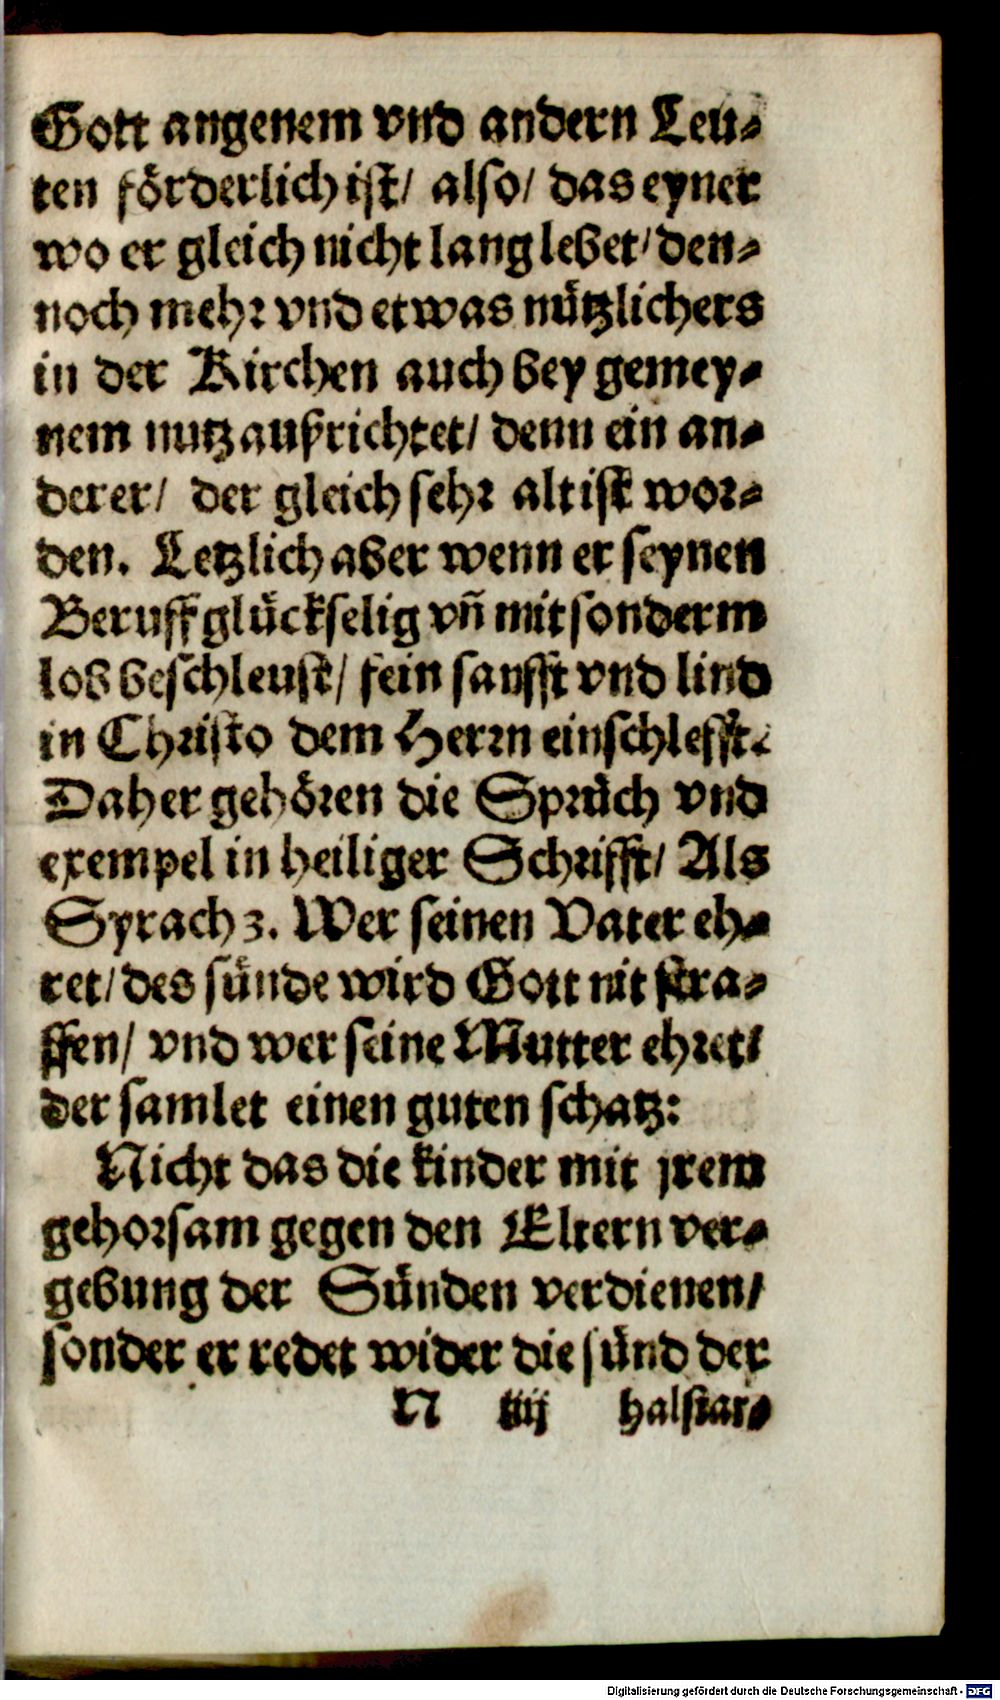 Gott angenem vnd andern Leu⸗
ten förderlich ist/ also/ das eyner
wo er gleich nicht lang lebet/ den⸗
noch mehr vnd etwas nützlichers
in der Kirchen auch bey gemey⸗
nem nutz außrichtet/ denn ein an⸗
derer/ der gleich sehr alt ist wor⸗
den. Letzlich aber wenn er seynen
Beruff glückselig vñ mit sonderm
lob beschleust/ fein sanfft vnd lind
in Christo dem Herrn einschlefft.
Daher gehören die Sprüch vnd
exempel in heiliger Schrifft/ Als
Syrach 3. Wer seinen Vater eh⸗
ret/ des sünde wird Gott nit stra⸗
ffen/ vnd wer seine Mutter ehret/
der samlet einen guten schatz:
Nicht das die kinder mit jrem
gehorsam gegen den Eltern ver⸗
gebung der Sünden verdienen/
sonder er redet wider die sünd der
N iiij halstar⸗
Digitalisierung gefördert durch die Deutsche Forschungsgemeinschaft - DFG